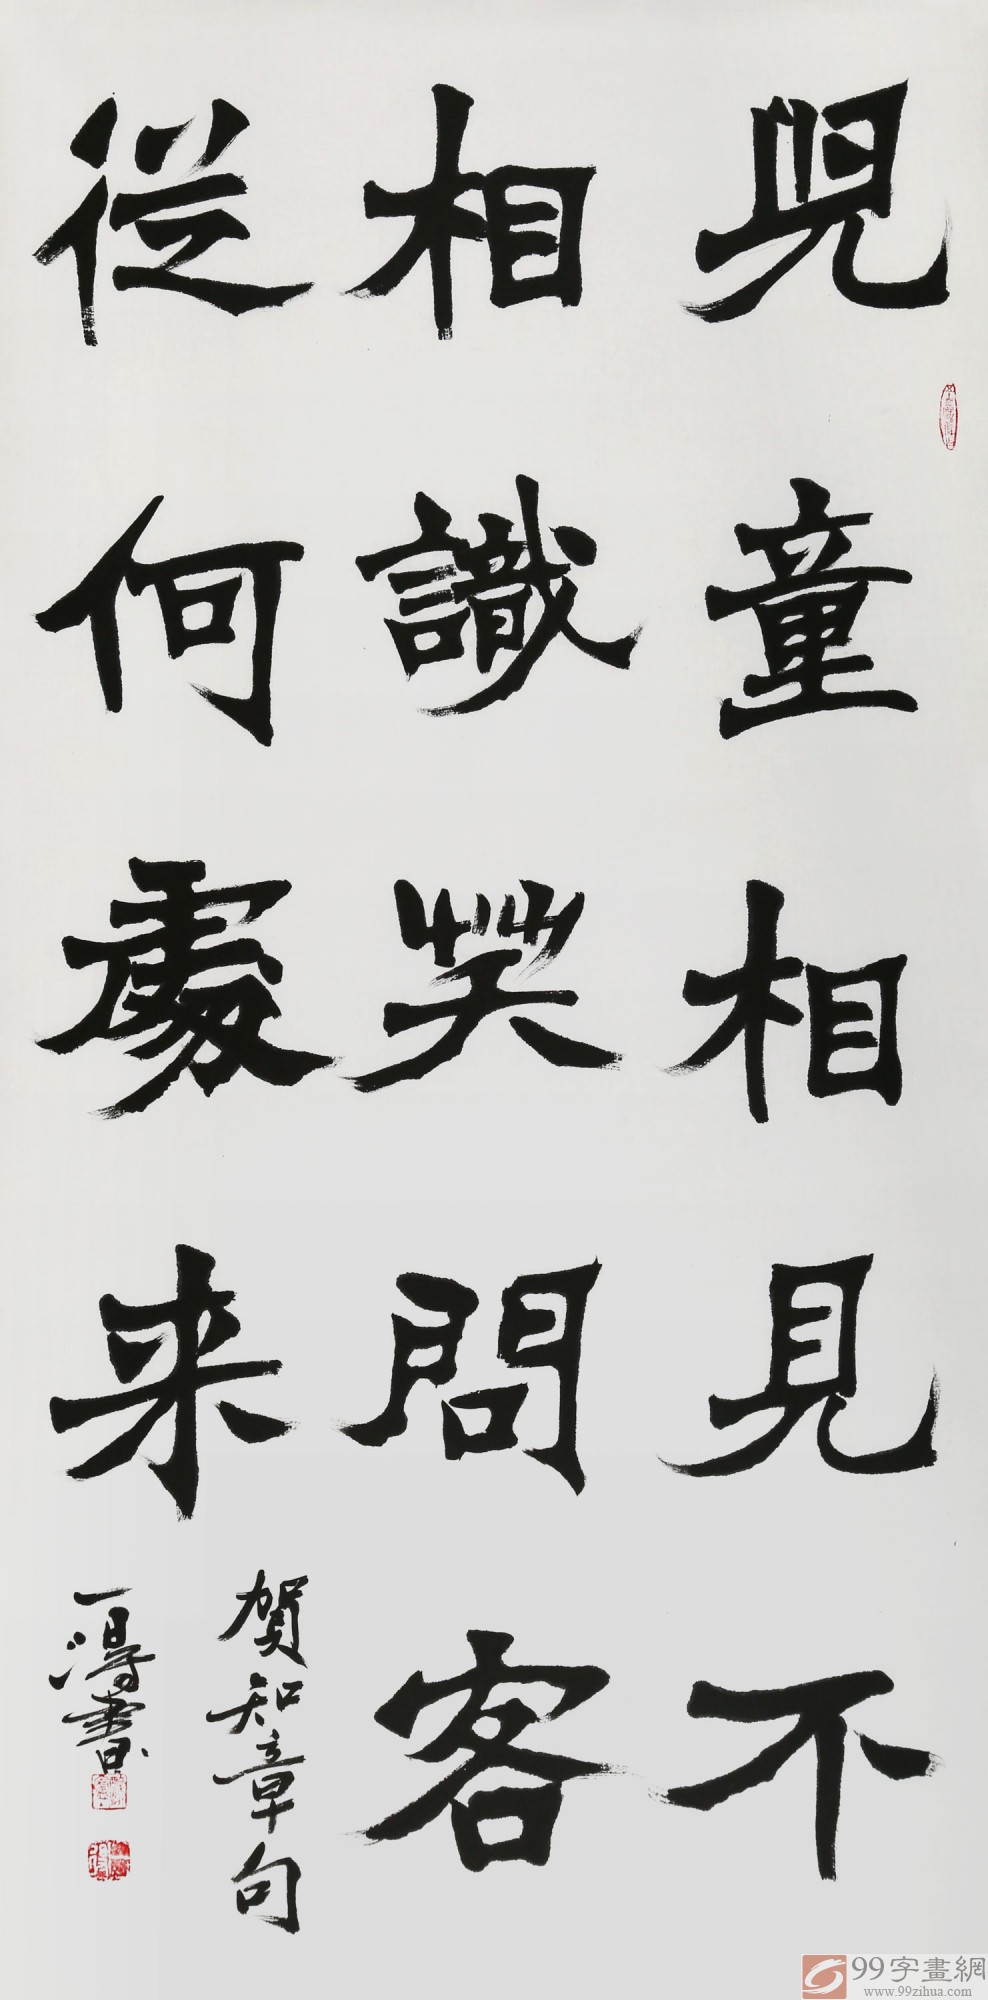 兒童相見不
相識笑問客
從何處来
賀知章句
一得書
99字畫網
www.99zihua.com